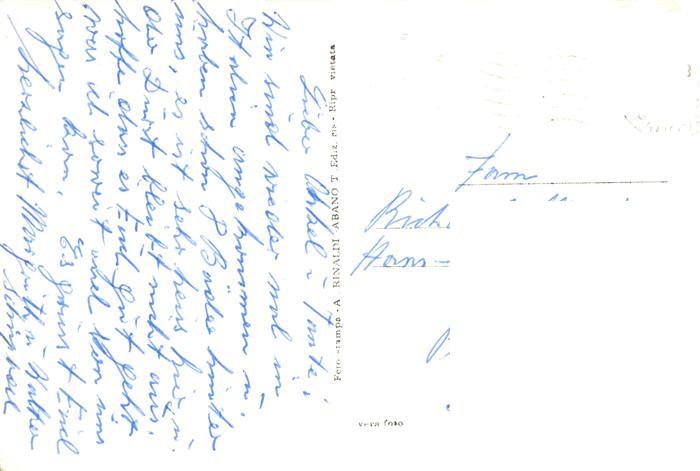 Lieber Onkel u Tante!
Wir sind wieder mal in
Italien angekommen u.
haben schon 8 Bäder hinter
uns, es ist sehr heiss hier u.
der Durst bleibt nicht aus.
hoffe das es Euch gut geht
was ich soweit auch von uns
sagen kann,
Es grüsst Euch
herzlichst Margrith u Walter
Foto stampa - A RINALDI - ABANO T Ediz ris - Ripr vietata
Fam
Rich
Hans-
vera foto